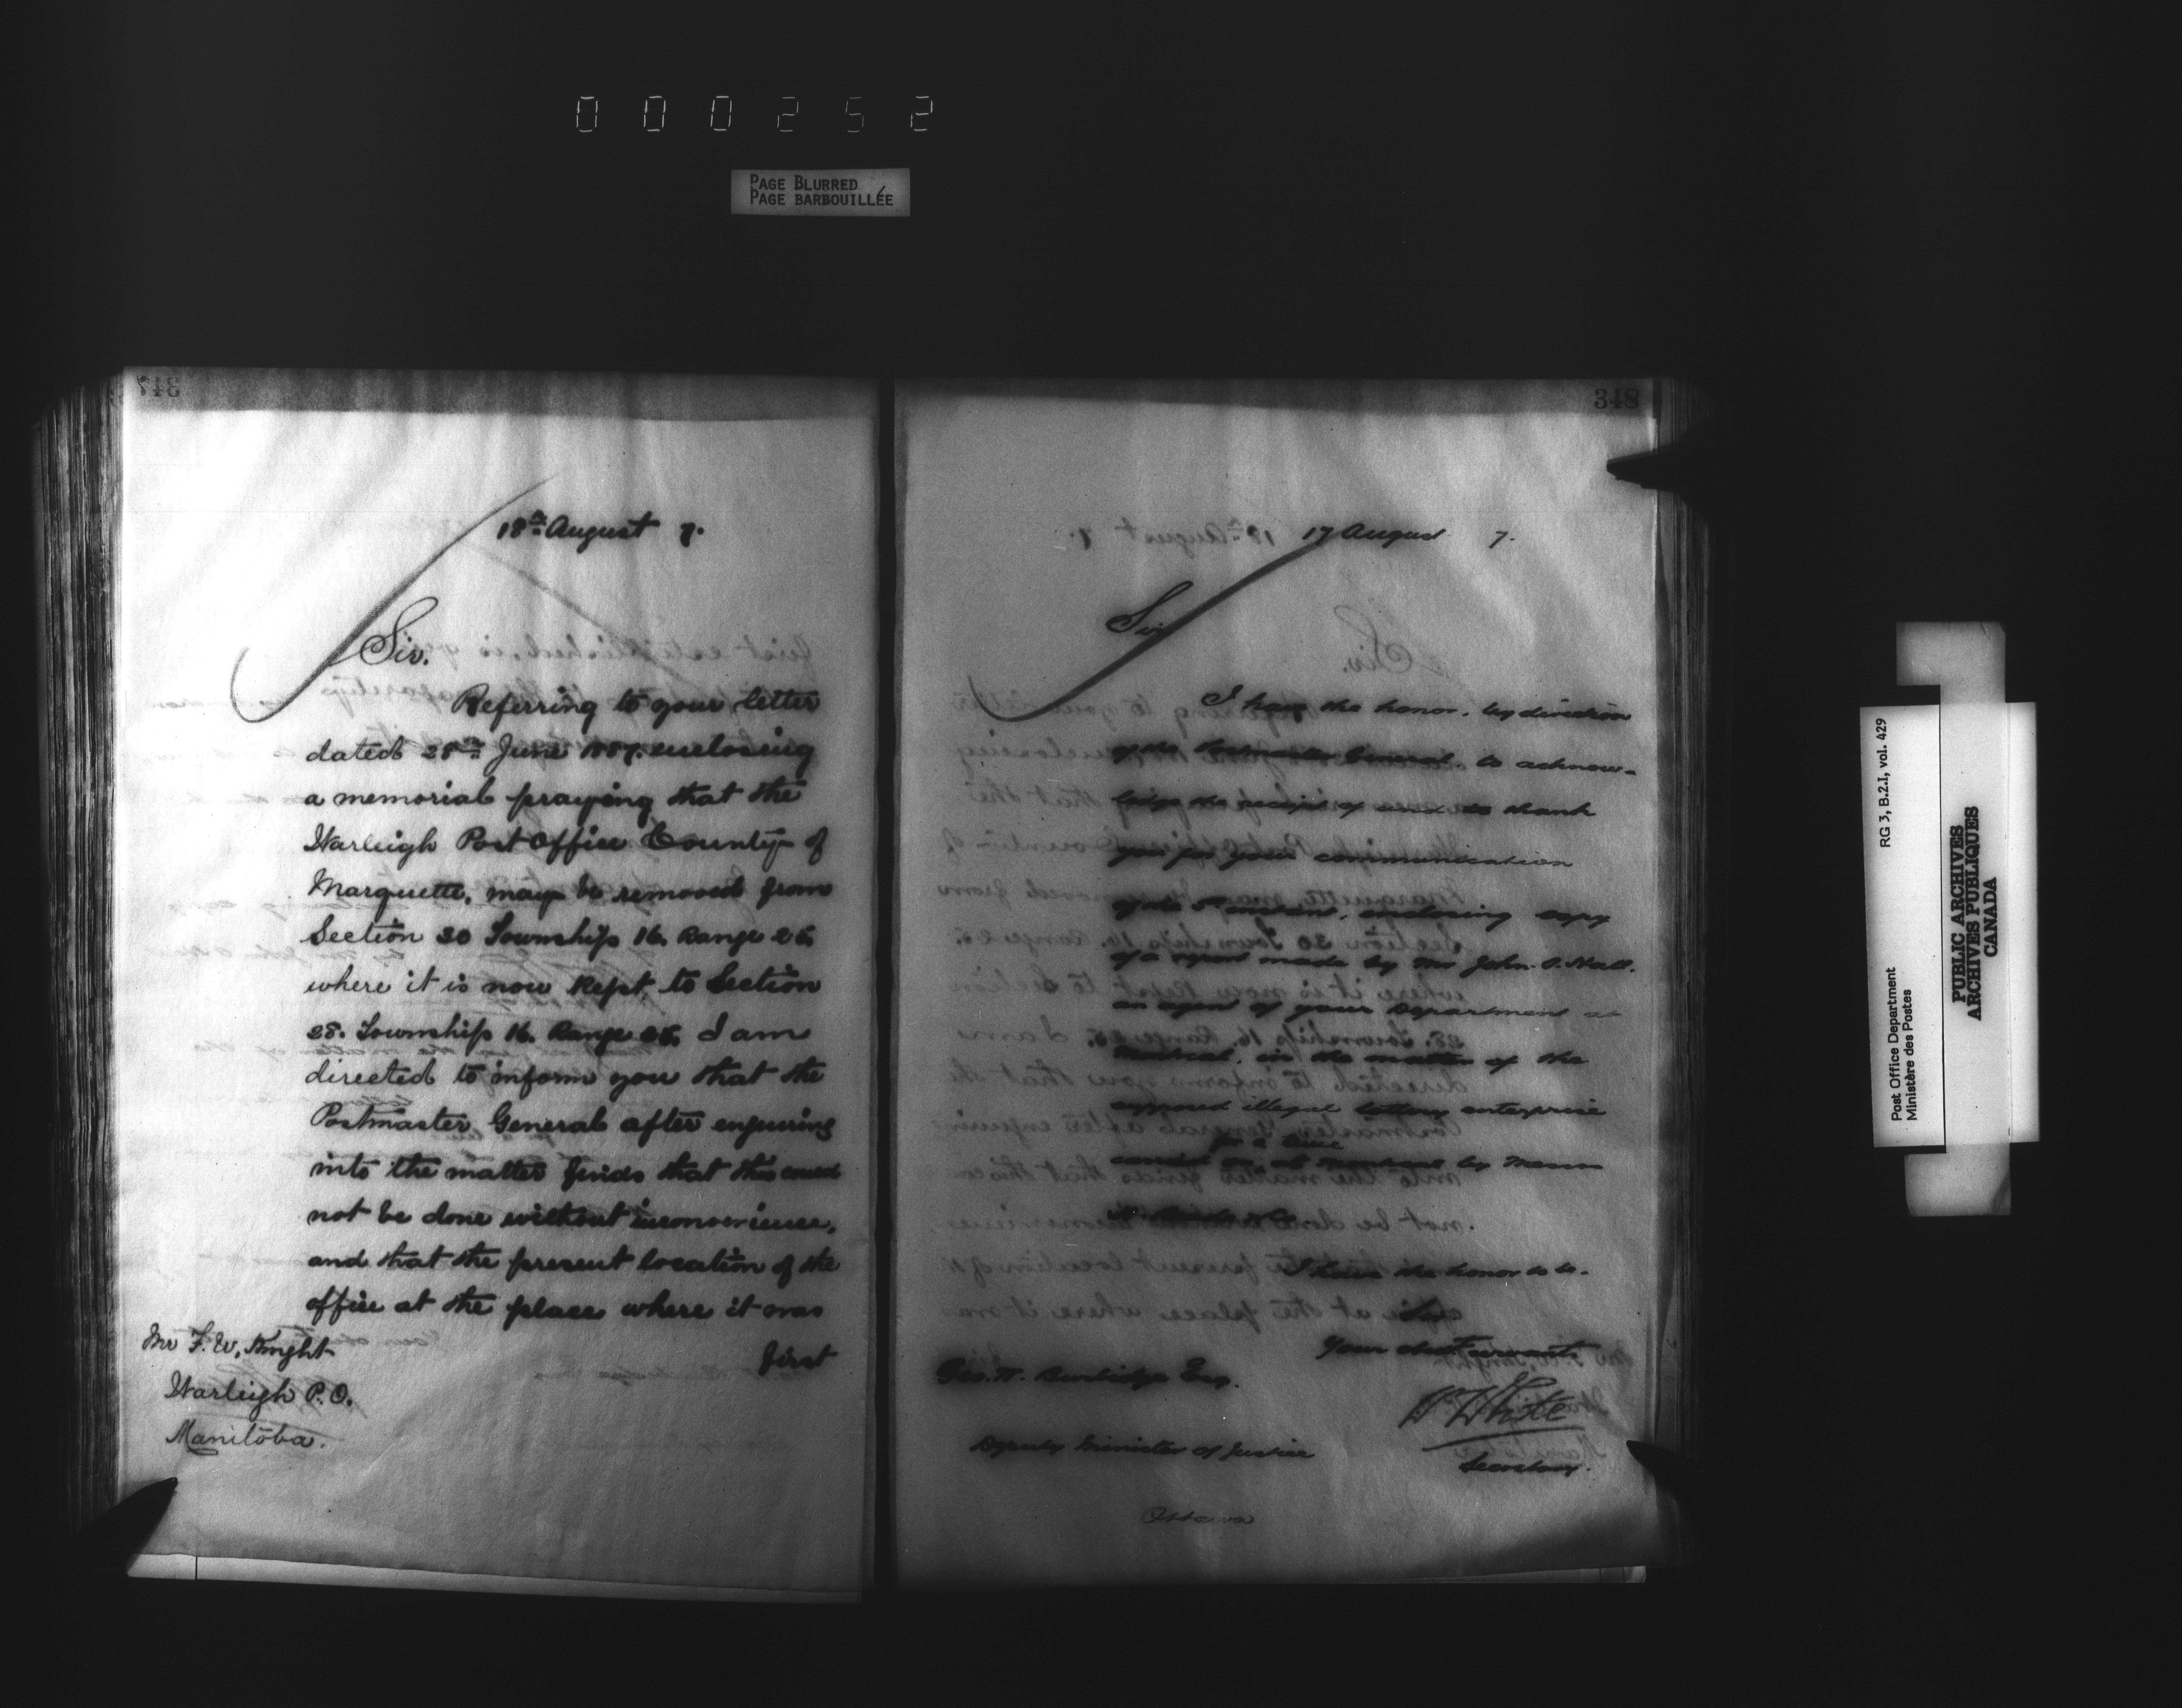 000252
PAGE BLURRED
PAGE BARBOUILLÉE
347
18th August 7.
Sir.
Referring to your letter
dated 28th June 1887. enclosing
a memorial praying that the
Warleigh Post Office County of
Marquette, may be removed from
Section 30 Township 16. Range 26.
where it is now Kept, to Section
28. Township 16. Range 26. I am
directed to inform you that the
Postmaster General after enquiring
into the matter finds that this could
not be done without inconvenience,
and that the present location of the
office at the place where it was
first
Mr F. W. Knight
Warleigh P.O.
Manitoba.
348
17 August 7.
Sir
I have the honor, by direction
of the Postmaster General, to acknow-
ledge the receipt of and to thank
you for your communication
of the 5th instant, enclosing copy
of a report made by Mr John Hall.
an agent of your Department at
Montreal, in the matter of the
supposed illegal lottery enterprise
for a time
carried on at Montreal by Messrs
I have the honor to be.
Sir
Your obedt servant
W White
Secretary.
Geo. W. Burbidge Esq.
Deputy Minister of Justice
Ottawa
Post Office Department
Ministère des Postes
RG 3, B.2.I, vol. 429
PUBLIC ARCHIVES
ARCHIVES PUBLIQUES
CANADA